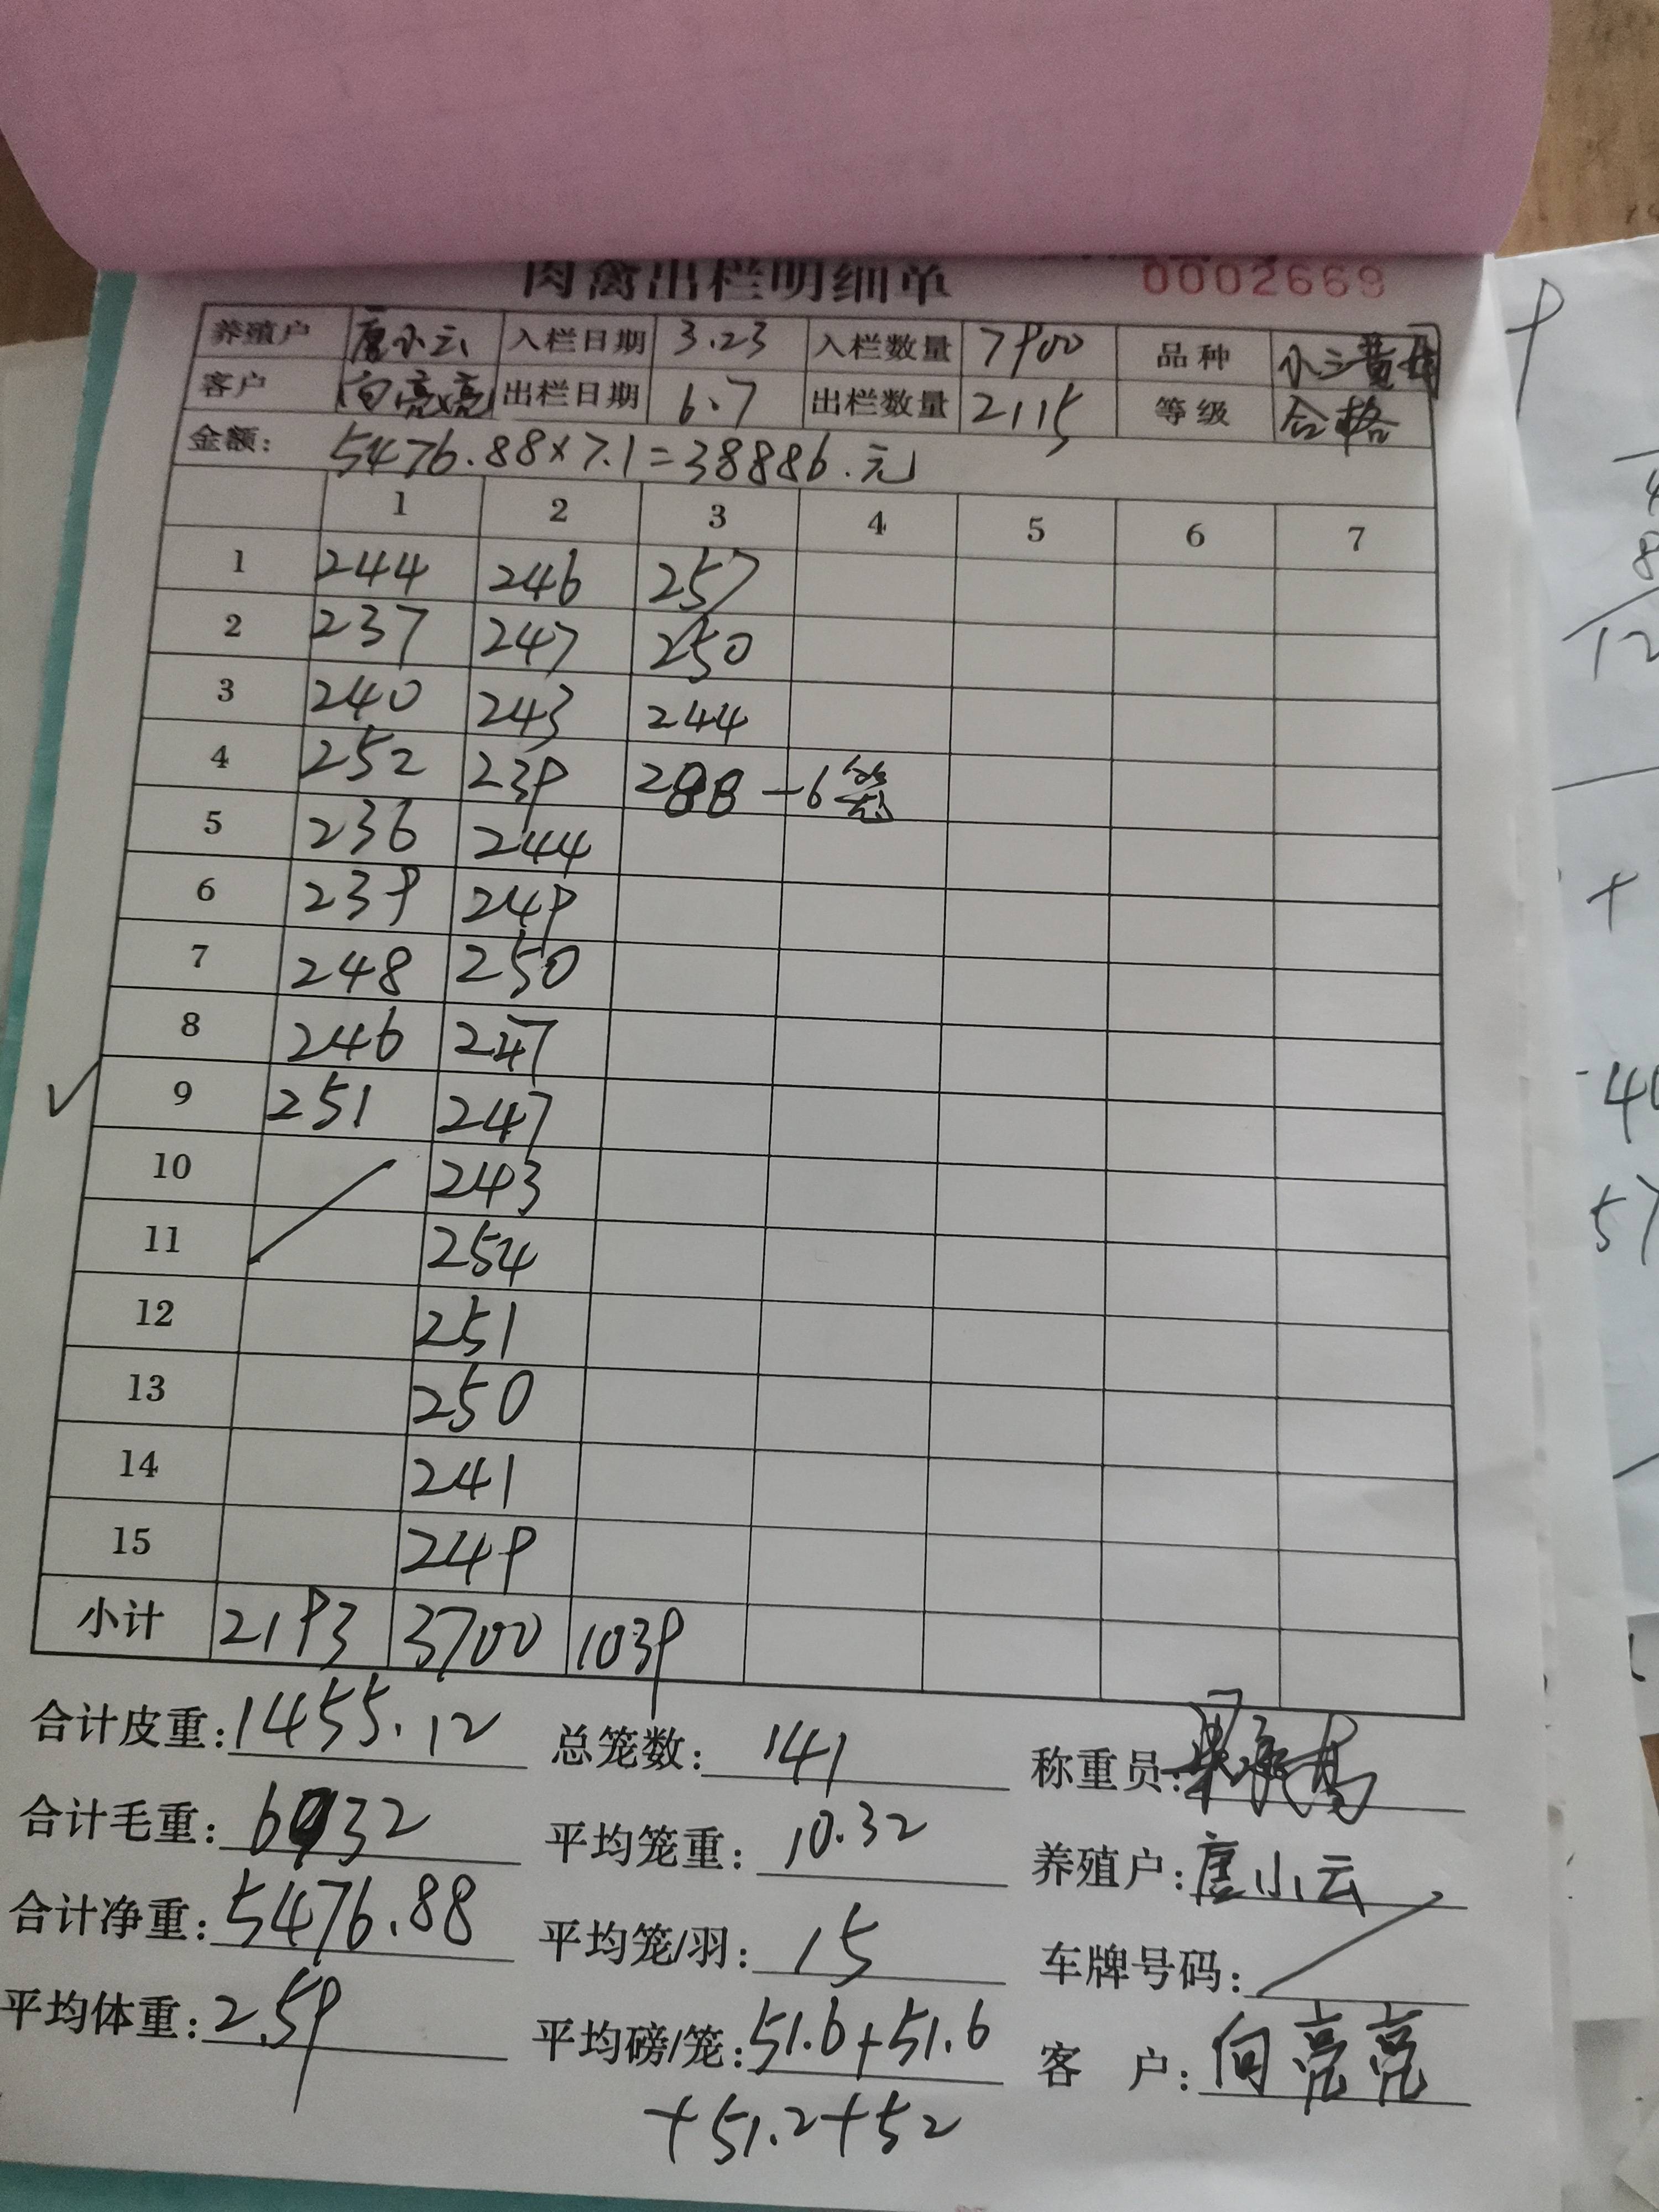 肉禽出栏明细单 0002669
养殖户 唐小云 入栏日期 3.23 入栏数量 7900 品种 小三黄
客户 向亮亮 出栏日期 6.7 出栏数量 2115 等级 合格
金额: 5476.88×7.1=38886.元
1 2 3 4 5 6 7
1 244 246 257
2 237 247 250
3 240 243 244
4 252 239 288 -6笼
5 236 244
6 239 249
7 248 250
8 246 247
9 251 247
10 243
11 254
12 251
13 250
14 241
15 249
小计 2193 3700 1039
合计皮重: 1455.12 总笼数: 141 称重员:
合计毛重: 6932 平均笼重: 10.32 养殖户: 唐小云
合计净重: 5476.88 平均笼/羽: 15 车牌号码:
平均体重: 2.59 平均磅/笼: 51.6+51.6 客 户: 向亮亮
+51.2+52